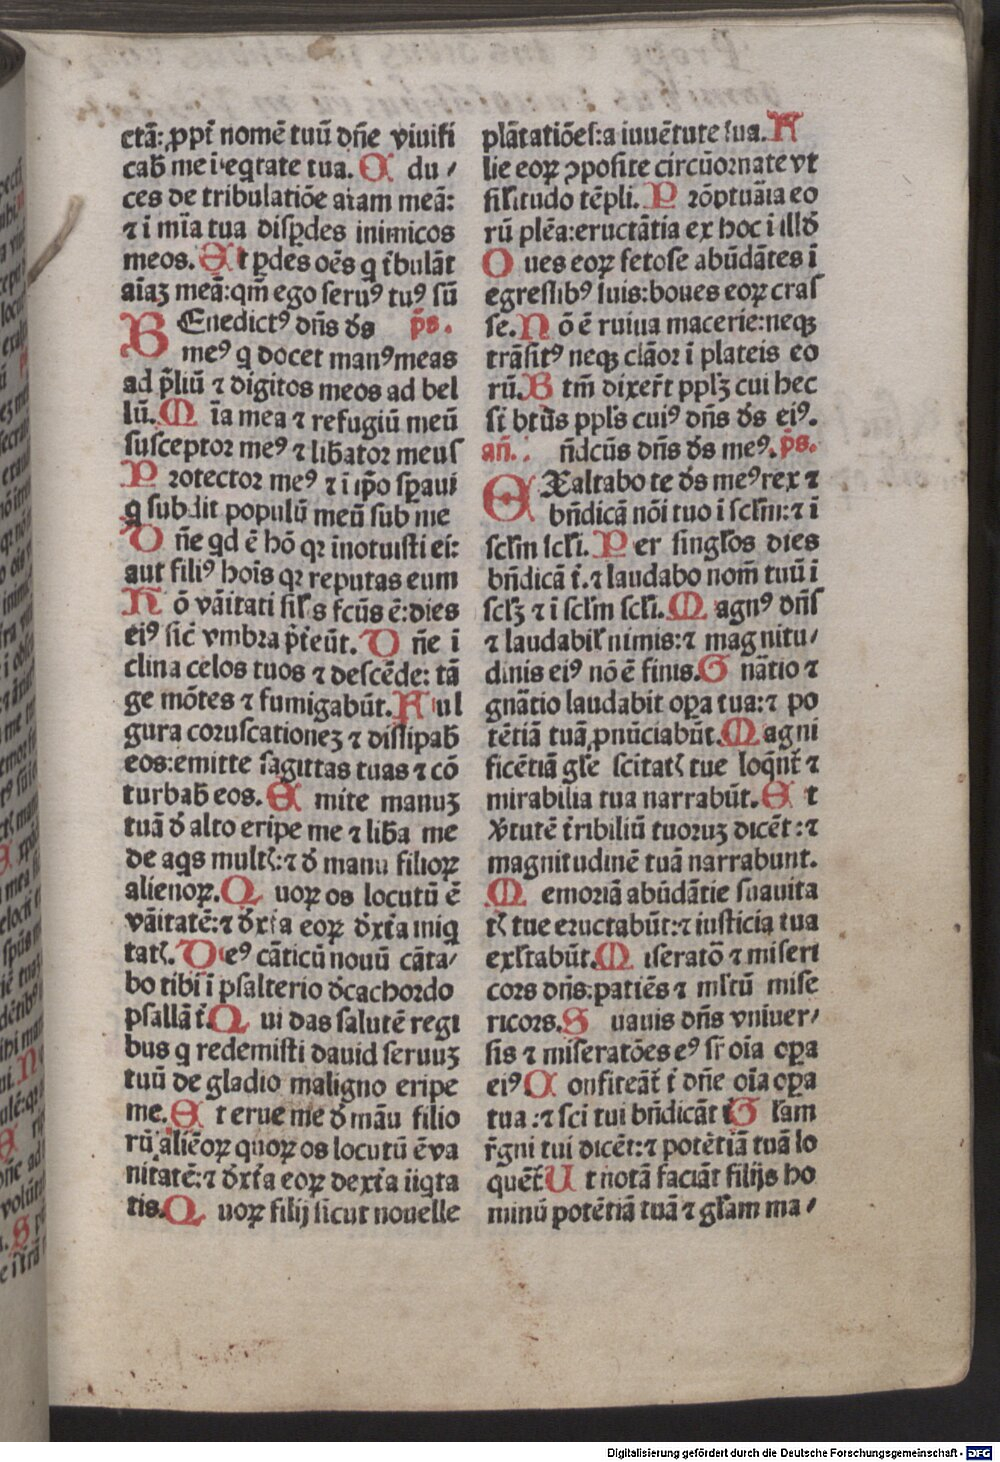 ctā: ꝓpt̄ nomē tuū dn̄e viuifi
cab̄ me ī eq̄tate tua. E du⸗
ces de tribulatiōe aīam meā:
⁊ ī mīa tua disꝑdes inimicos
meos. Et ꝑdes oēs q̄ tͥbulāt
aīaꝫ meā: qm̄ ego seruꝰ tuꝰ sū
BEnedictꝰ dn̄s ds̄ p̄s.
meꝰ q̄ docet manꝰ meas
ad p̄liū ⁊ digitos meos ad bel
lū. Mīa mea ⁊ refugiū meū
susceptor meꝰ ⁊ lib̄ator meus
Protector meꝰ ⁊ ī ip̄o sꝑaui
q̄ subdit populū meū sub me
Dn̄e qd̄ ē hō qꝛ īnotuisti ei:
aut filiꝰ hoīs qꝛ reputas eum
Hō vāitati sil̄s fc̄us ē: dies
eiꝰ sic̄ vmbra p̄teūt. Dn̄e ī
clina celos tuos ⁊ descēde: tā
ge mōtes ⁊ fumigabūt. Ful
gura coruscationeꝫ ⁊ dissipab̄
eos: emitte sagittas tuas ⁊ cō
turbab̄ eos. Emite manuꝫ
tuā d̄ alto eripe me ⁊ lib̄a me
de aqs multꝭ: ⁊ d̄ manu filioꝝ
alienoꝝ. Quoꝝ os locutū ē
vāitatē: ⁊ d̄xt̄a eoꝝ d̄xt̄a iniq
tatꝭ. Deꝰ cāticū nouū cāta⸗
bo tibi ī psalterio d̄cachordo
psallā tͥ. Qui das salutē regi
bus q̄ redemisti dauid seruuꝫ
tuū de gladio maligno eripe
me. Et erue me d̄ māu filio
rū aliēoꝝ quoꝝ os locutū ē va
nitatē: ⁊ d̄xt̄a eoꝝ dext̄a iiqta
tis. Quoꝝ filij sicut nouelle
plātatiōes: a iuuētute sua. F
lie eoꝝ ꝯposite circūornate vt
sil̄itudo tēpli. Prōptuāia eo
rū plēa: eructātia ex hoc ī illd̄
Oues eoꝝ fetose abūdātes ī
egressibꝰ suis: boues eoꝝ cras
se. Nō ē ruina macerie: neqꝫ
trāsitꝰ neqꝫ clāor ī plateis eo
rū. Btm̄ dixer̄t ppl̄ꝫ cui hec
st̄ bt̄us ppl̄s cuiꝰ dn̄s ds̄ eiꝰ.
an̄. n̄dcūs dn̄s ds̄ meꝰ. p̄s.
EXaltabo te ds̄ meꝰ rex ⁊
bn̄dicā nōi tuo ī scl̄m: ⁊ ī
scl̄m scl̄i. Per singl̄os dies
bn̄dicā tͥ. ⁊ laudabo nom̄ tuū ī
scl̄ꝫ ⁊ ī scl̄m scl̄i. Magnꝰ dn̄s
⁊ laudabil̄ nimis: ⁊ magnitu⸗
dinis eiꝰ nō ē finis. Gnātio ⁊
gnātio laudabit oꝑa tua: ⁊ po
tētiā tuā ꝓnūciabūt. Magni
ficētiā gl̄e scitatꝭ tue loq̄nt̄ ⁊
mirabilia tua narrabūt. Et
v̄tutē tͥribiliū tuoruꝫ dicēt: ⁊
magnitudinē tuā narrabunt.
Memoriā abūdātie suauita
tꝭ tue eructabūt: ⁊ iusticia tua
exl̄tabūt. Miseratō ⁊ miseri
cors dn̄s: patiēs ⁊ ml̄tū mise
ricors. Suauis dn̄s vniuer⸗
sis ⁊ miseratōes eꝰ sꝛ oīa oꝑa
eiꝰ. Confiteāt̄ tͥ dn̄e oīa oꝑa
tua: ⁊ scī tui bn̄dicāt tͥ Gl̄am
r̄gni tui dicēt: ⁊ potētiā tuā lo
quēt̄ Ut notā faciāt filijs ho
minū potētiā tuā ⁊ gl̄am ma⸗
Digitalisierung gefördert durch die Deutsche Forschungsgemeinschaft - DFG